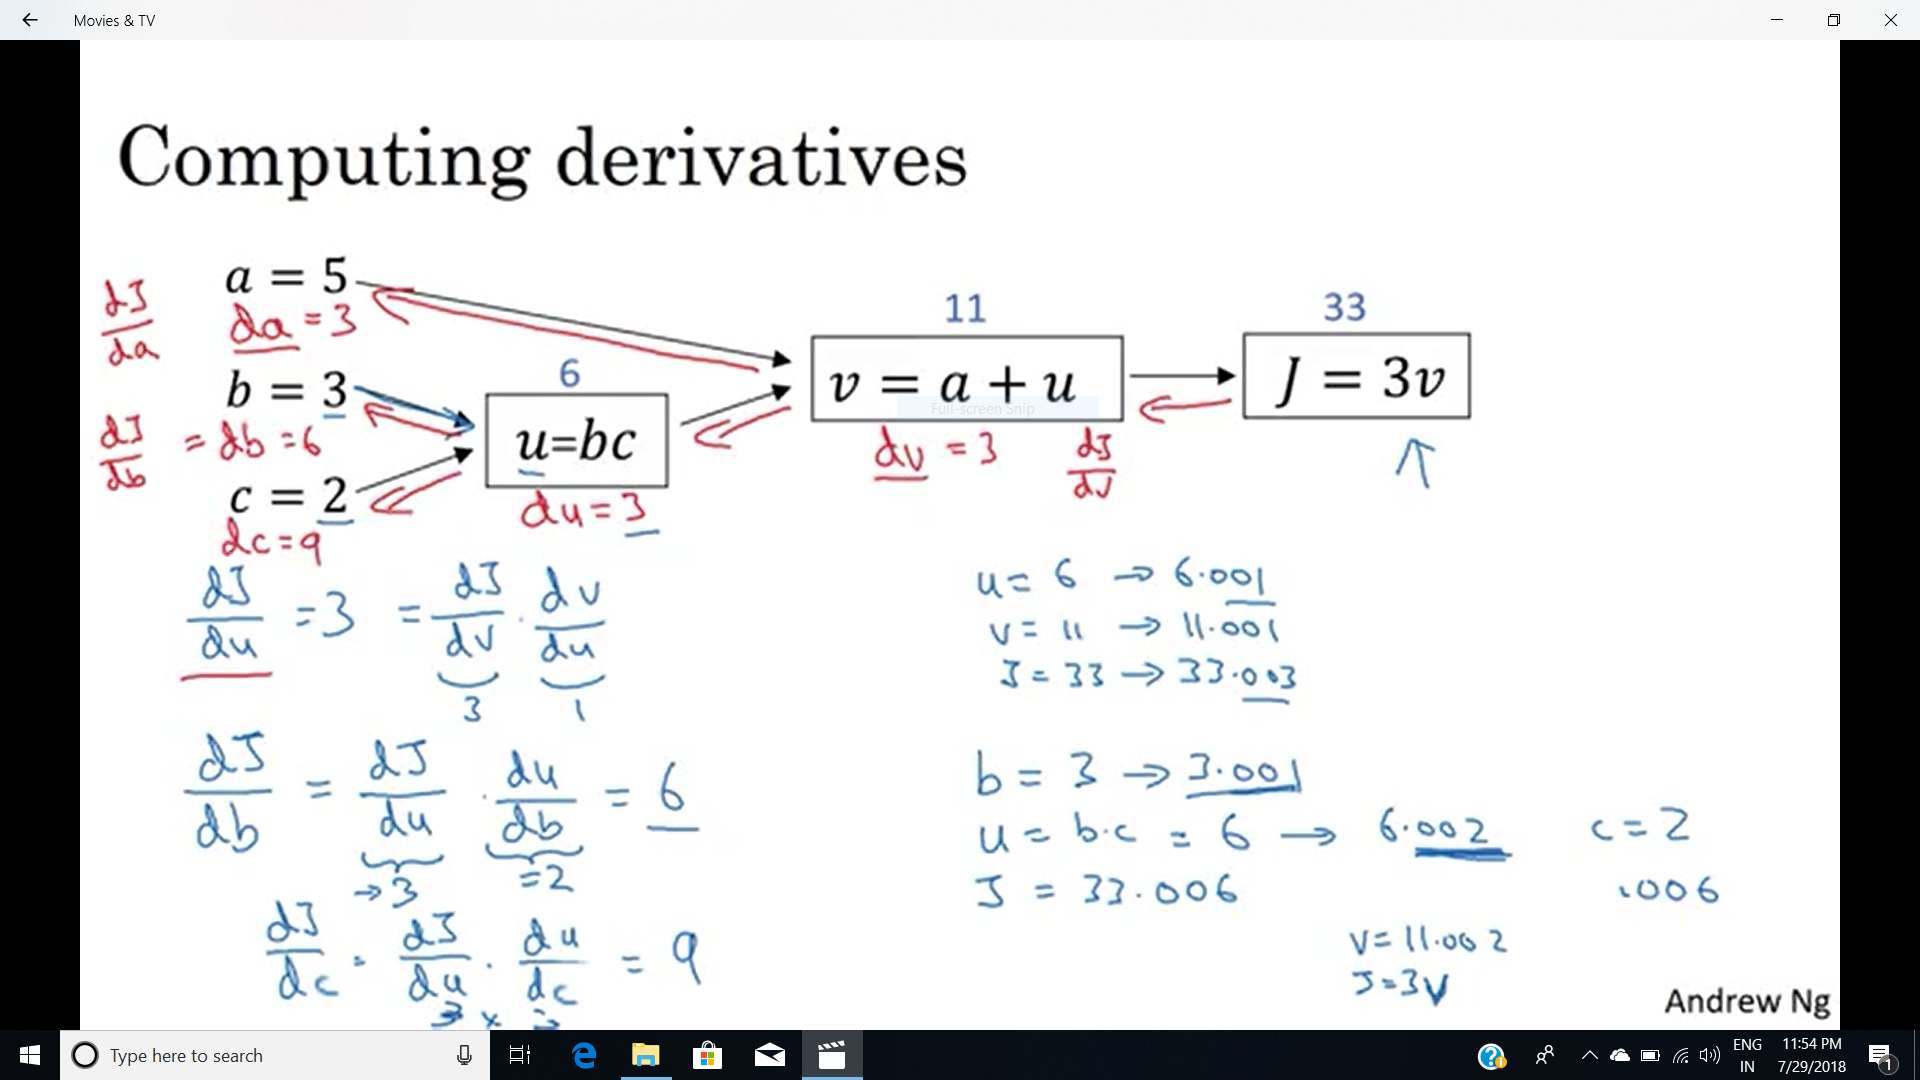 Movies & TV
Computing derivatives
a = 5
dJ/da
da = 3
b = 3
dJ/db = db = 6
c = 2
dc = 9
6
u=bc
du = 3
11
v = a + u
Full-screen Snip
dv = 3 dJ/dv
33
J = 3v
dJ/du = 3 = dJ/dv · dv/du
3 1
dJ/db = dJ/du · du/db = 6
→ 3 = 2
dJ/dc = dJ/du · du/dc = 9
3 × 3
u = 6 → 6.001
v = 11 → 11.001
J = 33 → 33.003
b = 3 → 3.001
u = b·c = 6 → 6.002 c = 2
J = 33.006 .006
v = 11.002
J = 3v
Andrew Ng
Type here to search
ENG
IN
11:54 PM
7/29/2018
1